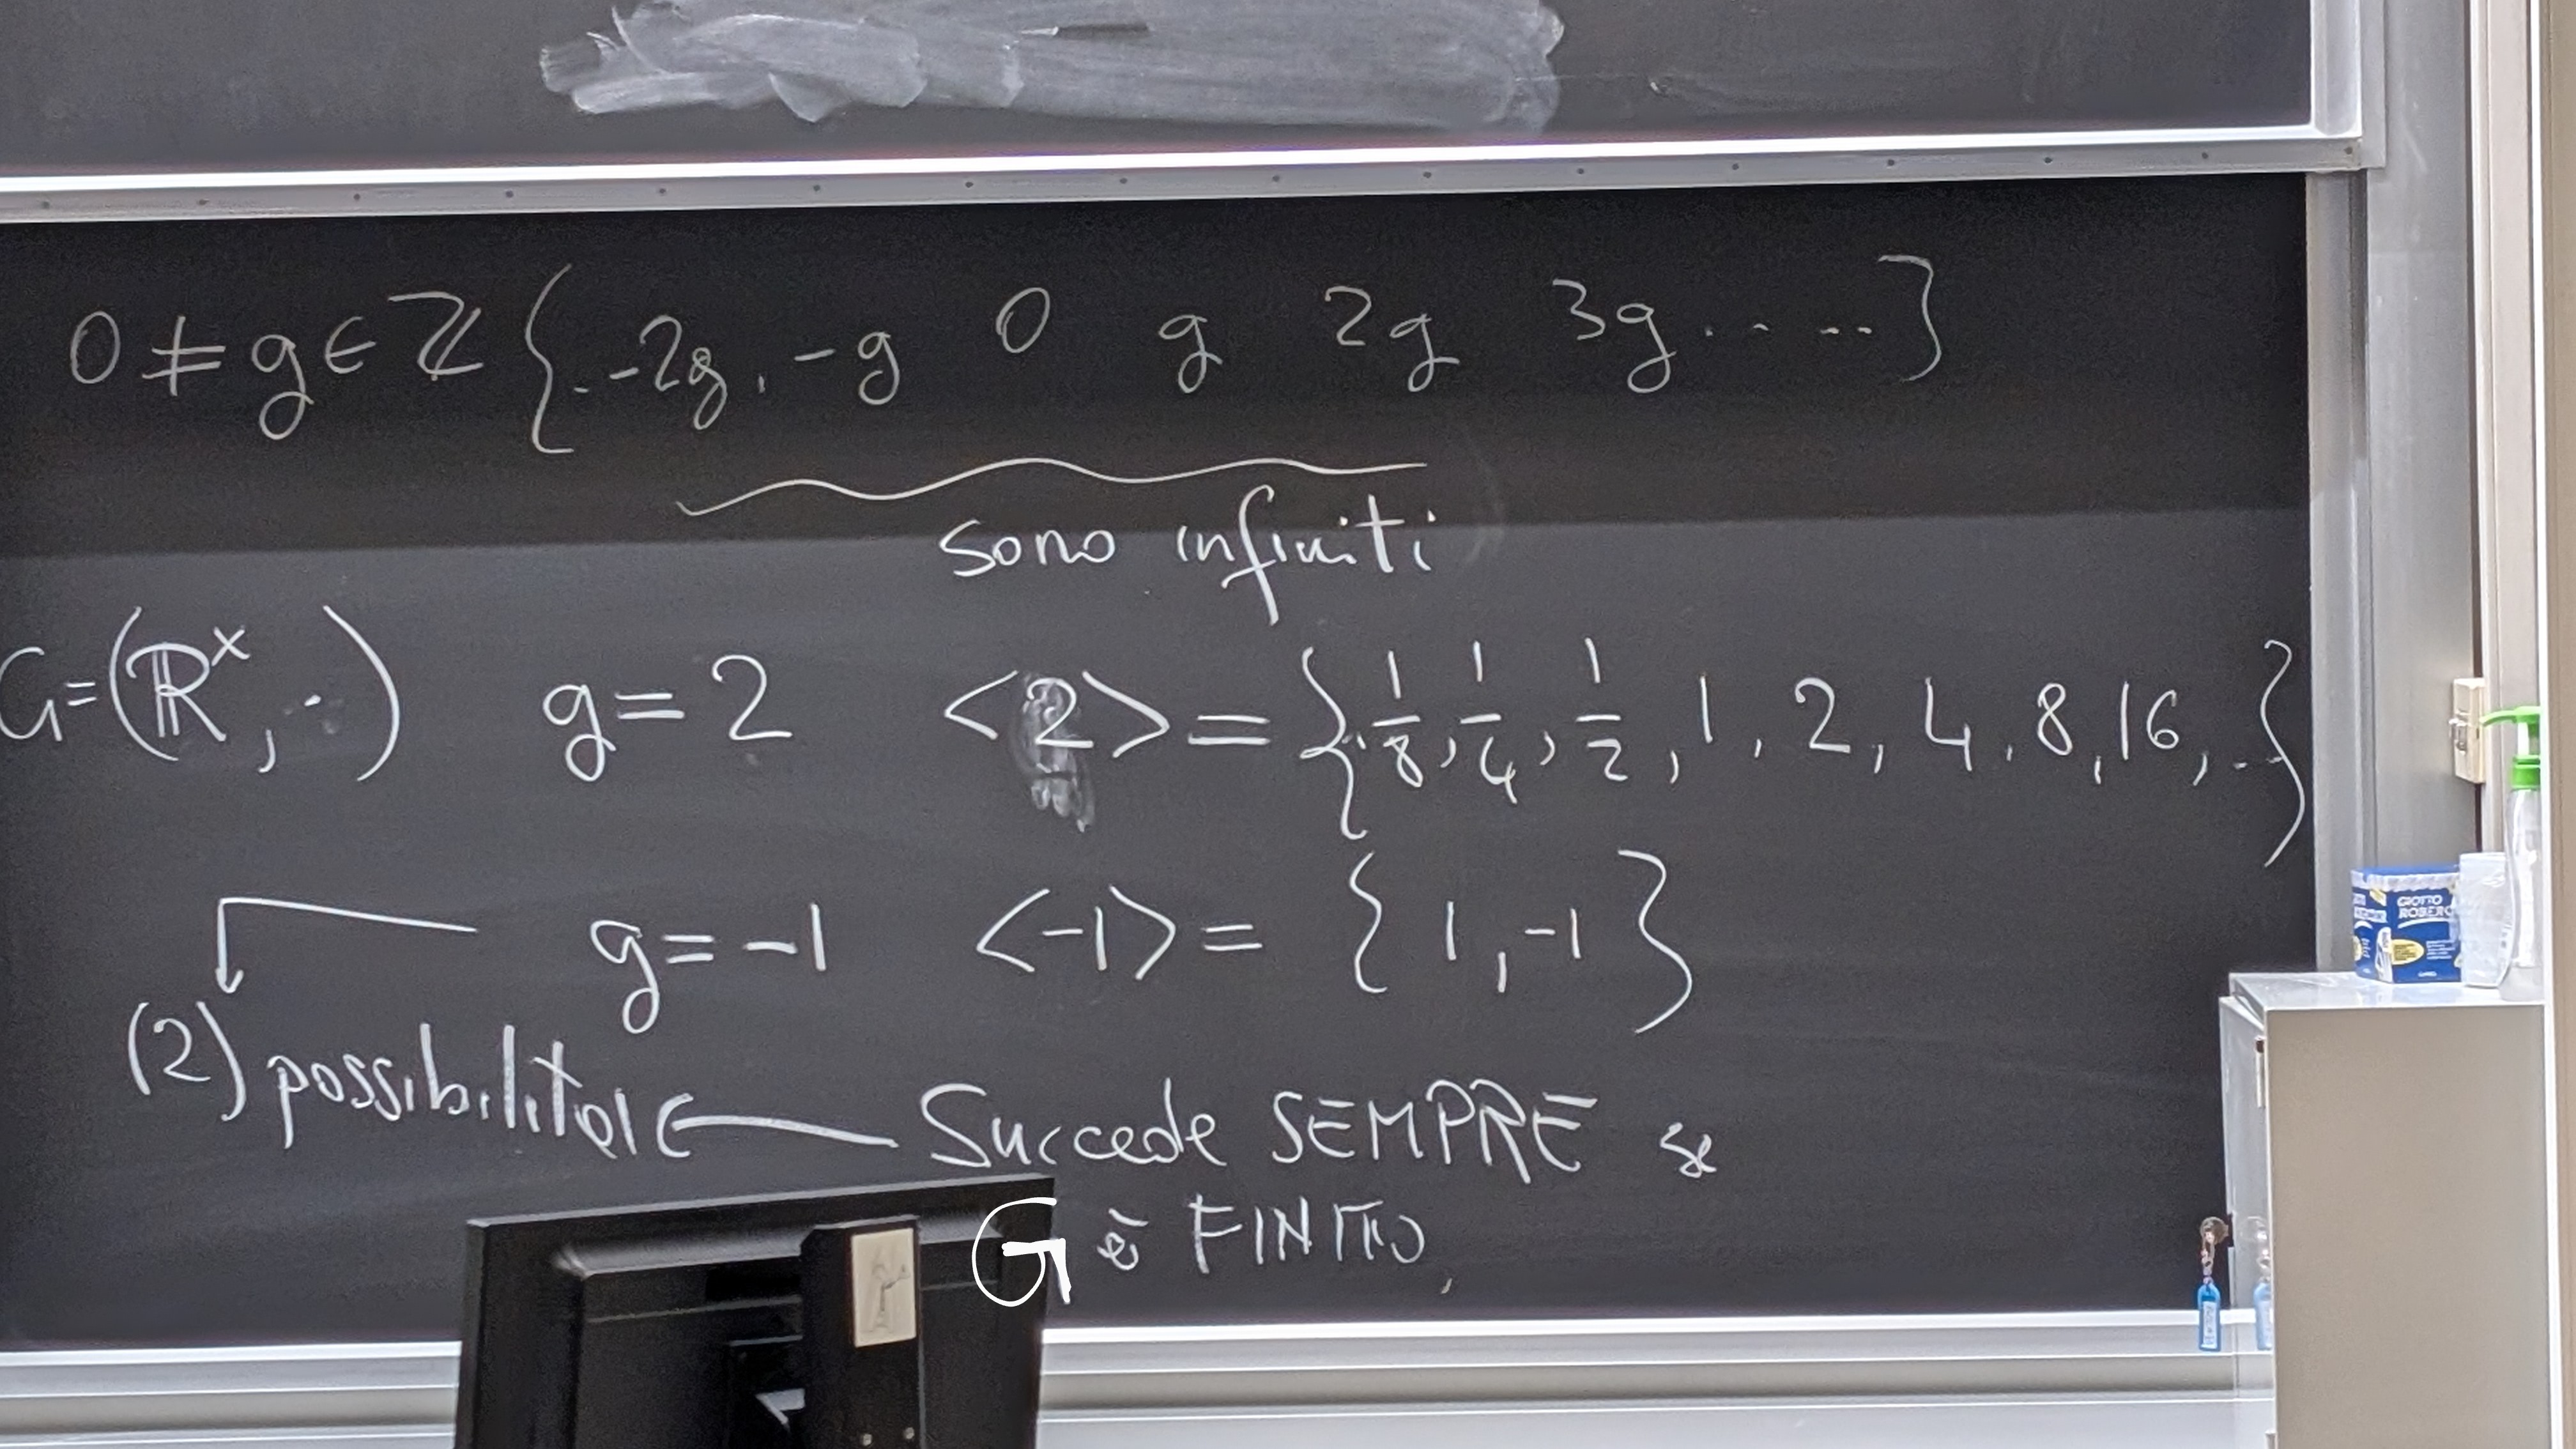 0 ≠ g ∈ ℤ {..-2g, -g 0 g 2g 3g.....}
sono infiniti
G=(ℝ^x, ·) g=2 <2> = {.1/8, 1/4, 1/2, 1, 2, 4, 8, 16, ..}
g=-1 <-1> = {1, -1}
(2) possibilità ← Succede SEMPRE se
G è FINITO
GIOTTO
ROBERC